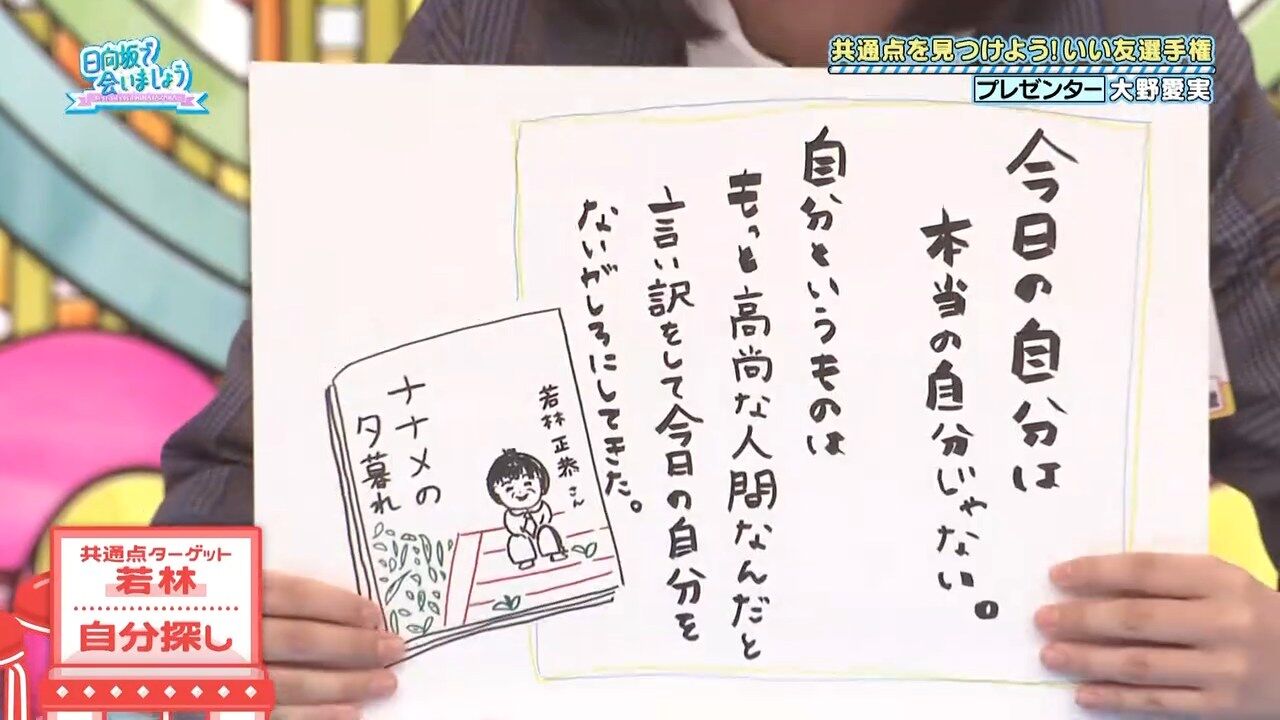 日向坂で
会いましょう
共通点を見つけよう！いい友選手権
プレゼンター 大野愛実
今日の自分は
本当の自分じゃない。
自分というものは
もっと高尚な人間なんだと
言い訳をして今日の自分を
ないがしろにしてきた。
若林正恭さん
ナナメの
夕暮れ
共通点ターゲット
若林
自分探し